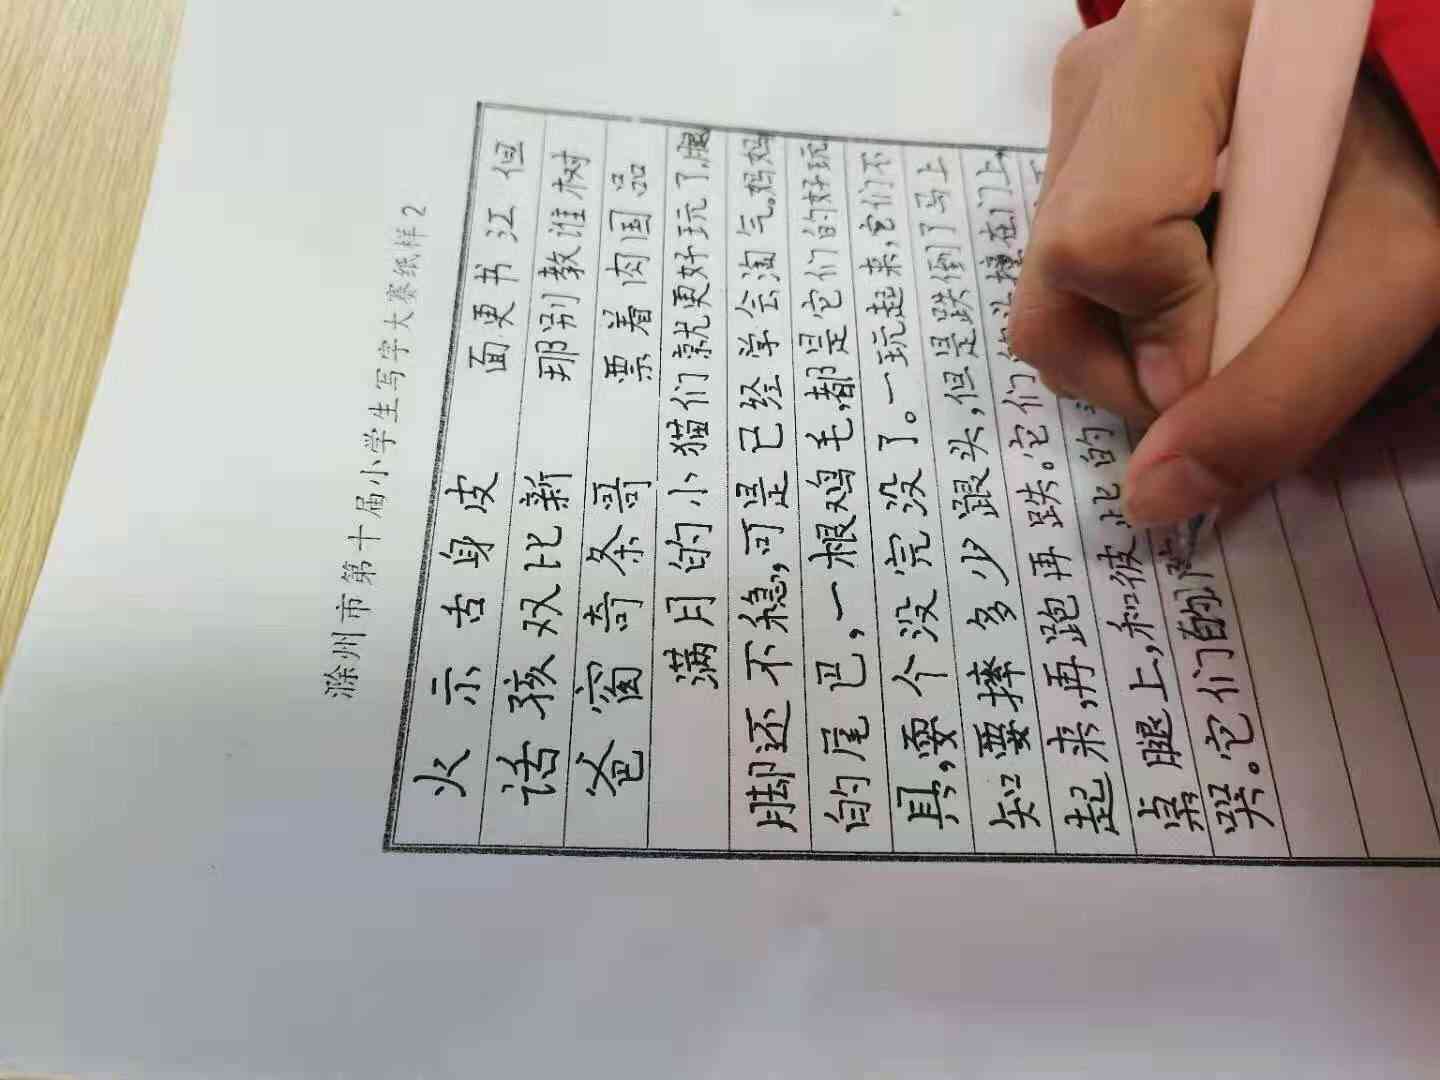 滁州市第十届小学生写字大赛纸样2
火示舌身皮 面更书江但
话孩双比新 那别教谁树
爸窗奇条哥 票着肉国品
满月的小猫们就更好玩了,腿
脚还不稳,可是已经学会淘气。妈妈
的尾巴,一根鸡毛,都是它们的好玩
具,耍个没完没了。一玩起来,它们不
知要摔多少跟头,但是跌倒了马上
起来,再跑再跌。它们撞在门上,
桌腿上,和彼此的
哭。它们的